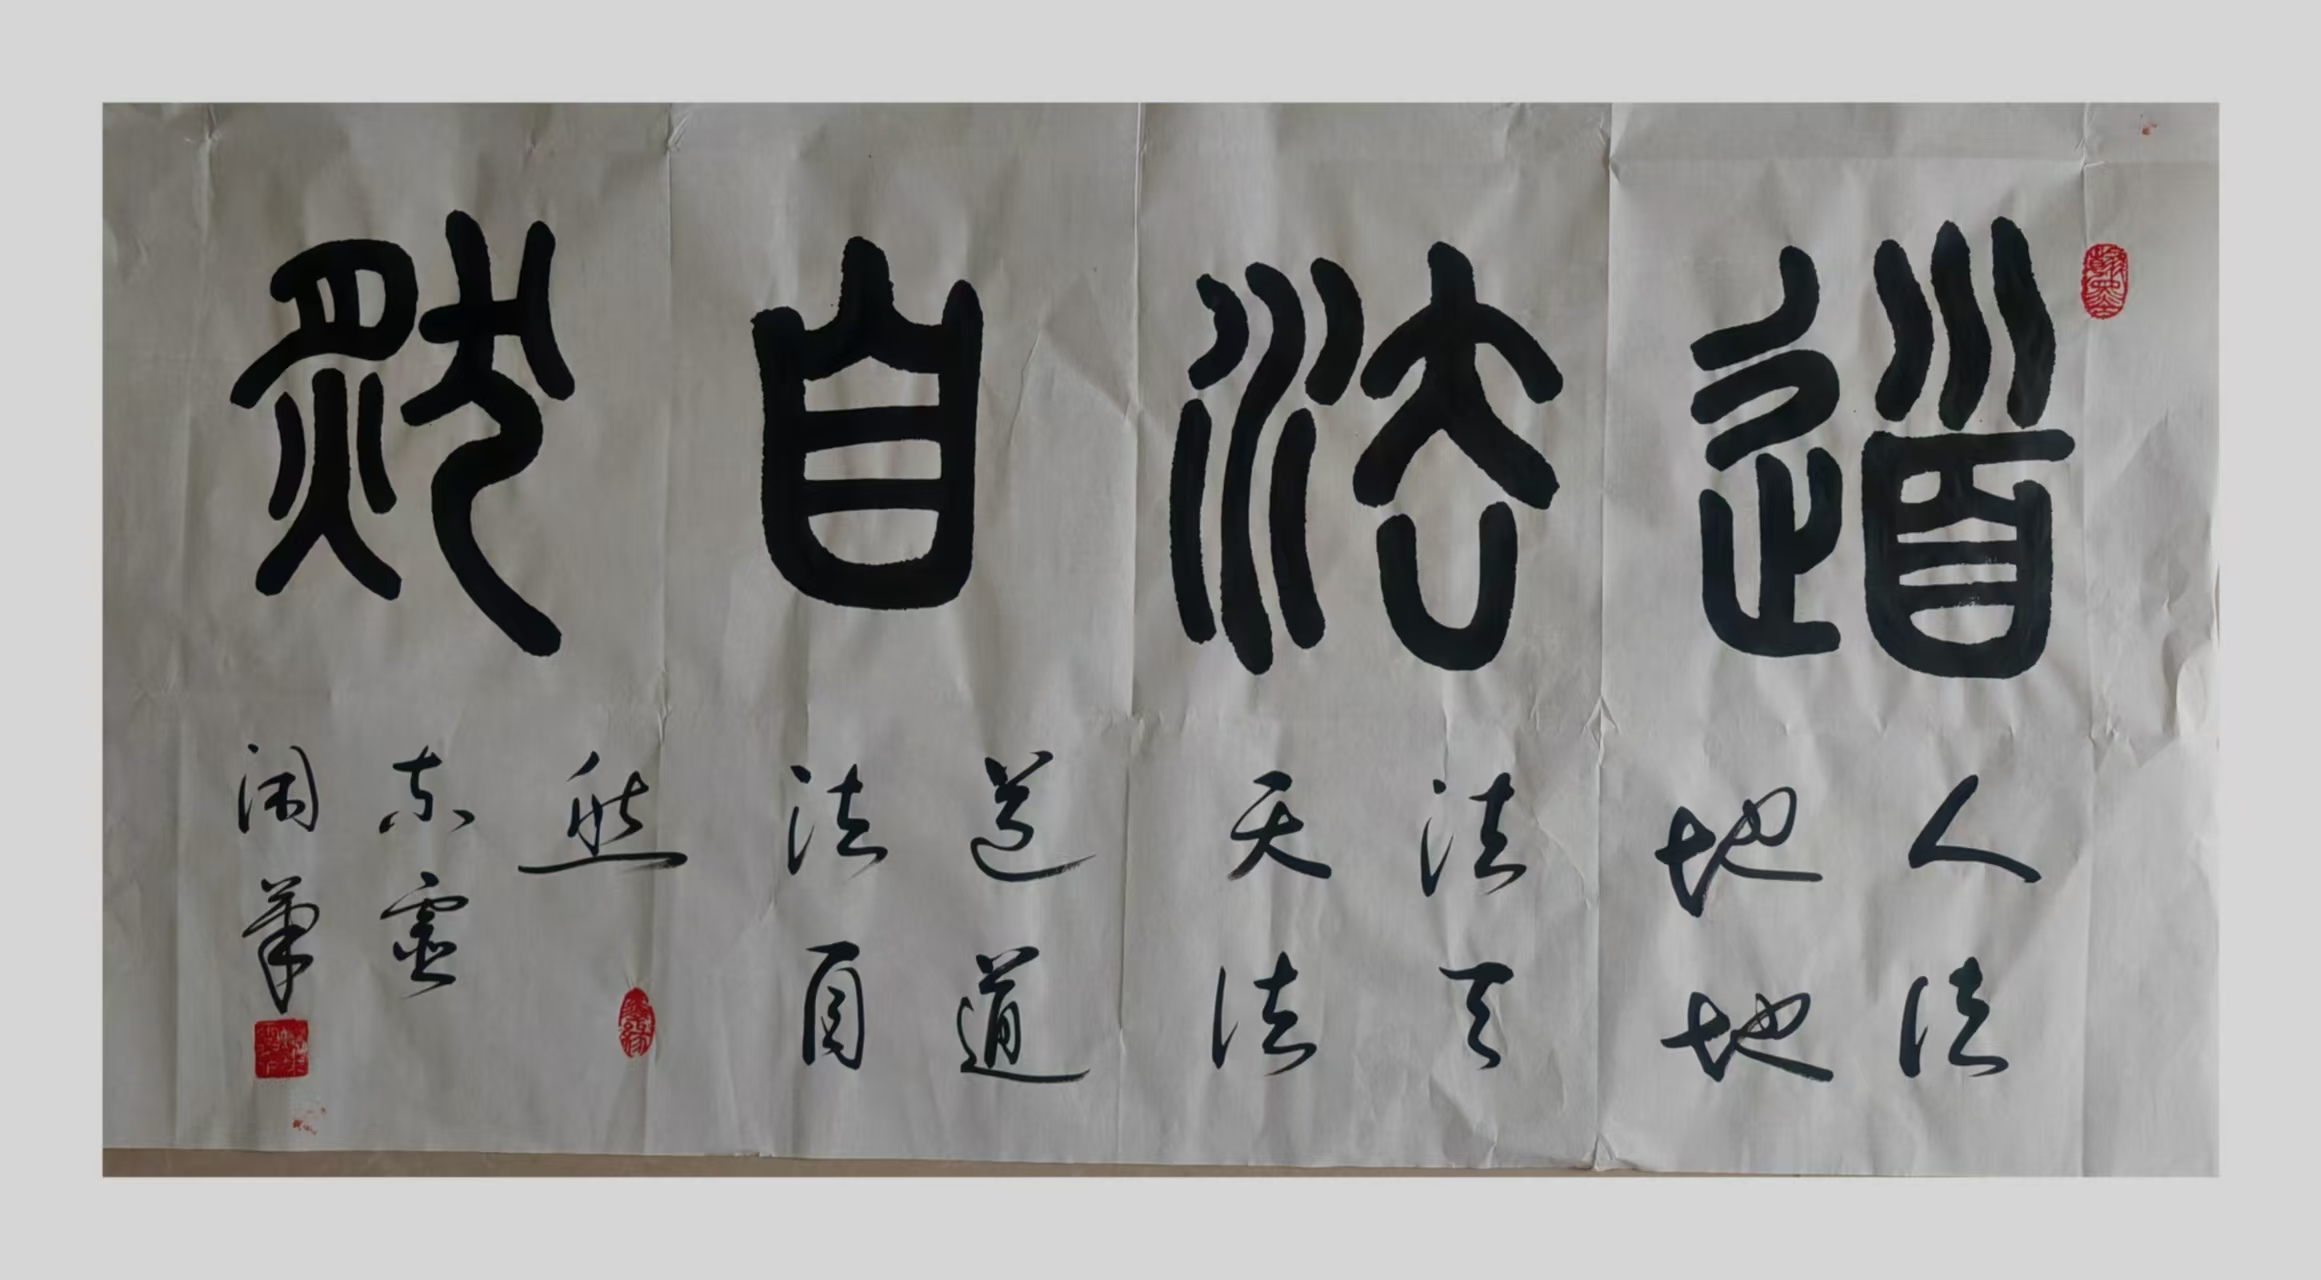 道法自然
人法
地地
法天
天法
道道
法自
然